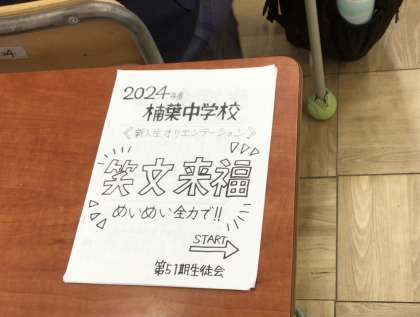 2024年度
楠葉中学校
《新入生オリエンテーション》
笑文来福
めいめい全力で!!
START
第51期生徒会